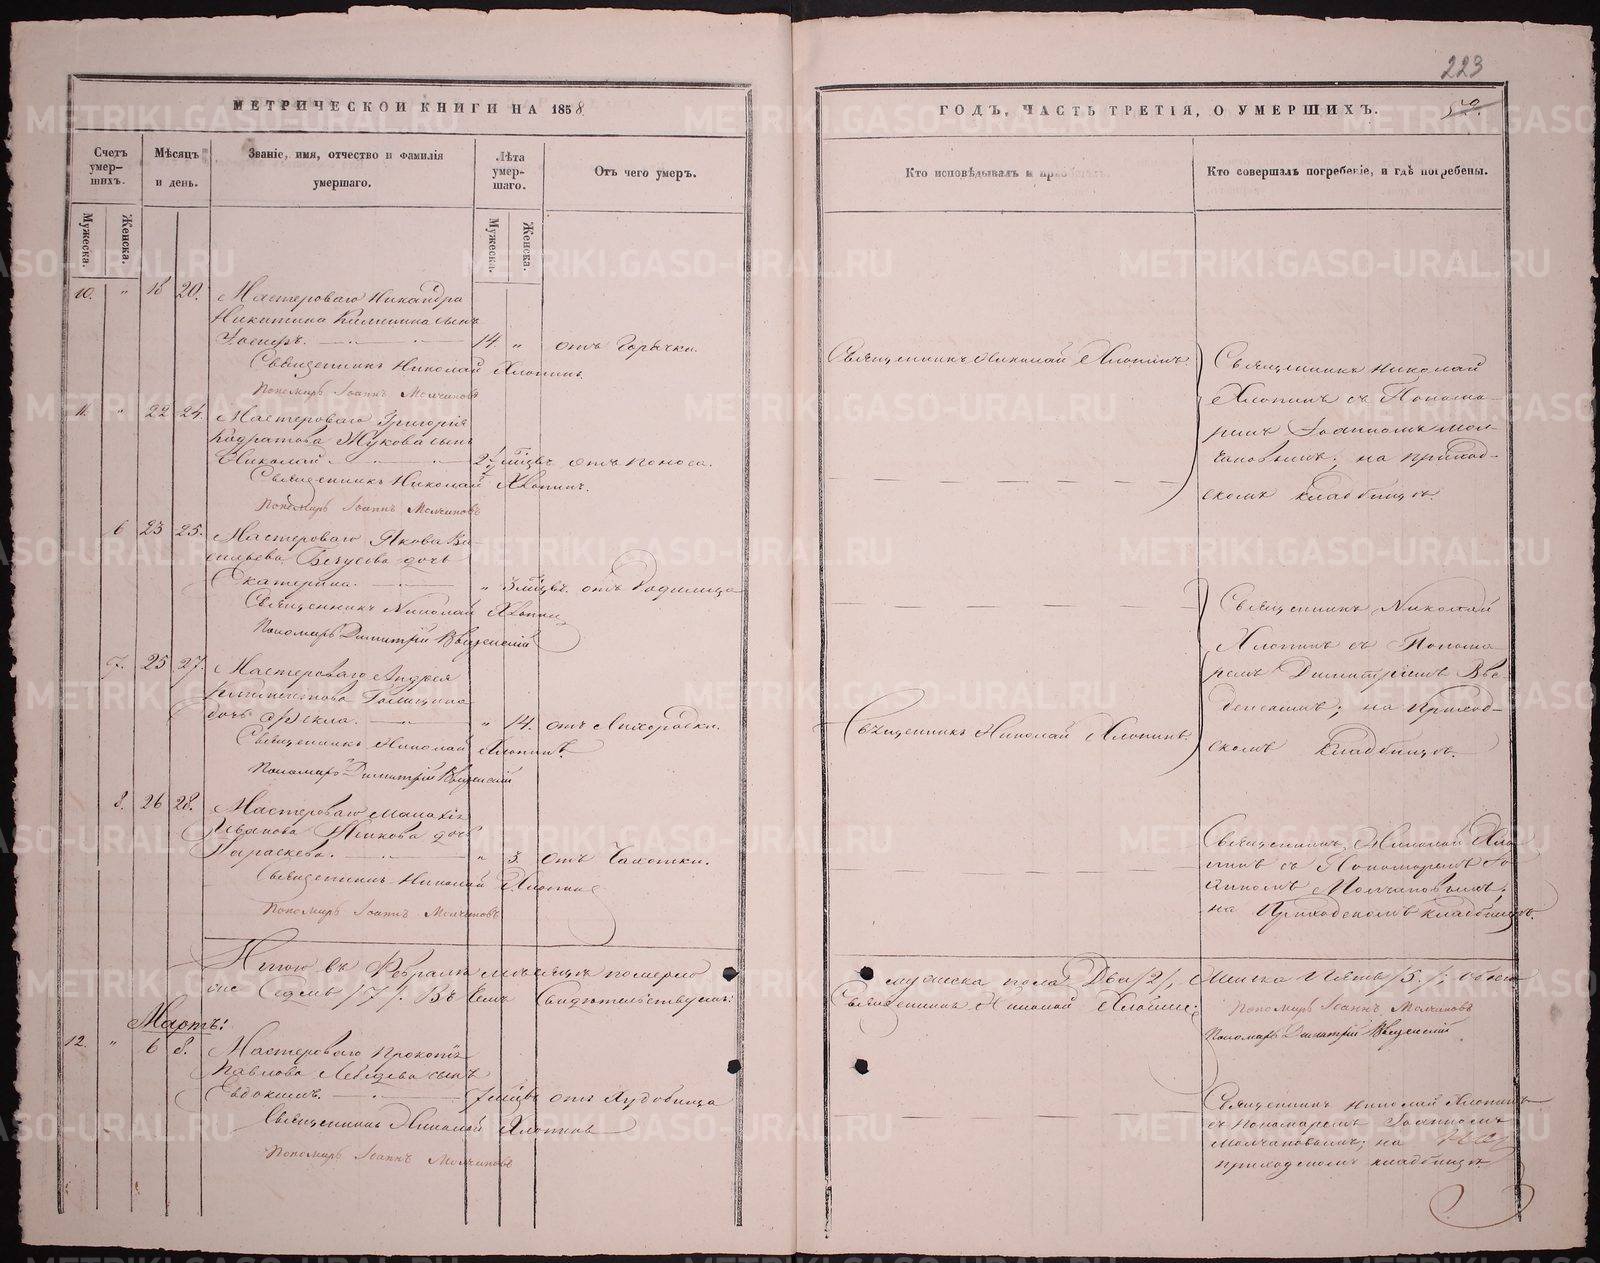 223
МЕТРИЧЕСКОЙ КНИГИ НА 1858
ГОДЪ, ЧАСТЬ ТРЕТІЯ, О УМЕРШИХЪ.
Счетъ умер-шихъ.
Мужеска.
Женска.
Мѣсяцъ и день.
Званіе, имя, отчество и фамилія умершаго.
Лѣта умер-шаго.
Мужеска.
Женска.
Отъ чего умеръ.
Кто исповѣдывалъ и
Кто совершалъ погребеніе, и гдѣ погребены.
10. " 18 20. Мастероваго Никандра
Никитина сынъ
14 " отъ Горячки.
Священникъ Николай Хлопинъ.
Пономарь Іоаннъ Молчановъ
Священникъ Николай Хлопинъ
Священникъ Николай
Хлопинъ съ Понома-
ремъ Іоанномъ Мол-
чановымъ; на приход-
скомъ кладбищѣ.
11. " 22 24. Мастероваго Григорія
Кодратова Жукова сынъ
Николай. отъ поноса.
Священникъ Николай Хлопинъ.
Пономарь Іоаннъ Молчановъ
6 23 25. Мастероваго Якова Ва-
сильева дочь
Екатерина. " 3 мѣсяцъ. отъ Родимца
Священникъ Николай Хлопин
Пономарь Димитрій Введенскій
Священникъ Николай
Хлопинъ съ Понома-
ремъ Димитріемъ Вве-
денскимъ; на Приход-
скомъ кладбищѣ.
7. 25 27. Мастероваго Андрея
Климентова
дочь Ѳекла. " 14. отъ Лихорадки.
Священникъ Николай Хлопинъ.
Пономарь Димитрій Введенскій
Священникъ Николай Хлопинъ.
8. 26 28. Мастероваго Малахія
Иванова дочь
Параскева. " 3. отъ Чахотки.
Священникъ Николай Хлопин
Пономарь Іоаннъ Молчановъ
Священникъ Николай Хло-
пинъ съ Пономаремъ Іо-
анномъ Молчановымъ;
на Приходскомъ кладбищѣ.
Итого въ Февралѣ мѣсяцѣ померло
мужеска пола Два /2/, женска Пять /5/; обоего
Седмь /7/. Въ чемъ свидѣтельствуемъ:
Священникъ Николай Хлопинъ
Пономарь Іоаннъ Молчановъ
Пономарь Димитрій Введенскій
Мартъ:
12. " 6 8. Мастероваго Прокопія
Павлова Лебедева сынъ
Евдокимъ. 7 мѣсцъ отъ Худобища
Священникъ Николай Хлопинъ
Пономарь Іоаннъ Молчановъ
Священникъ Николай Хлопинъ
съ Пономаремъ Іоанномъ
Молчановымъ; на
приходскомъ кладбищѣ
METRIKI.GASO-URAL.RU